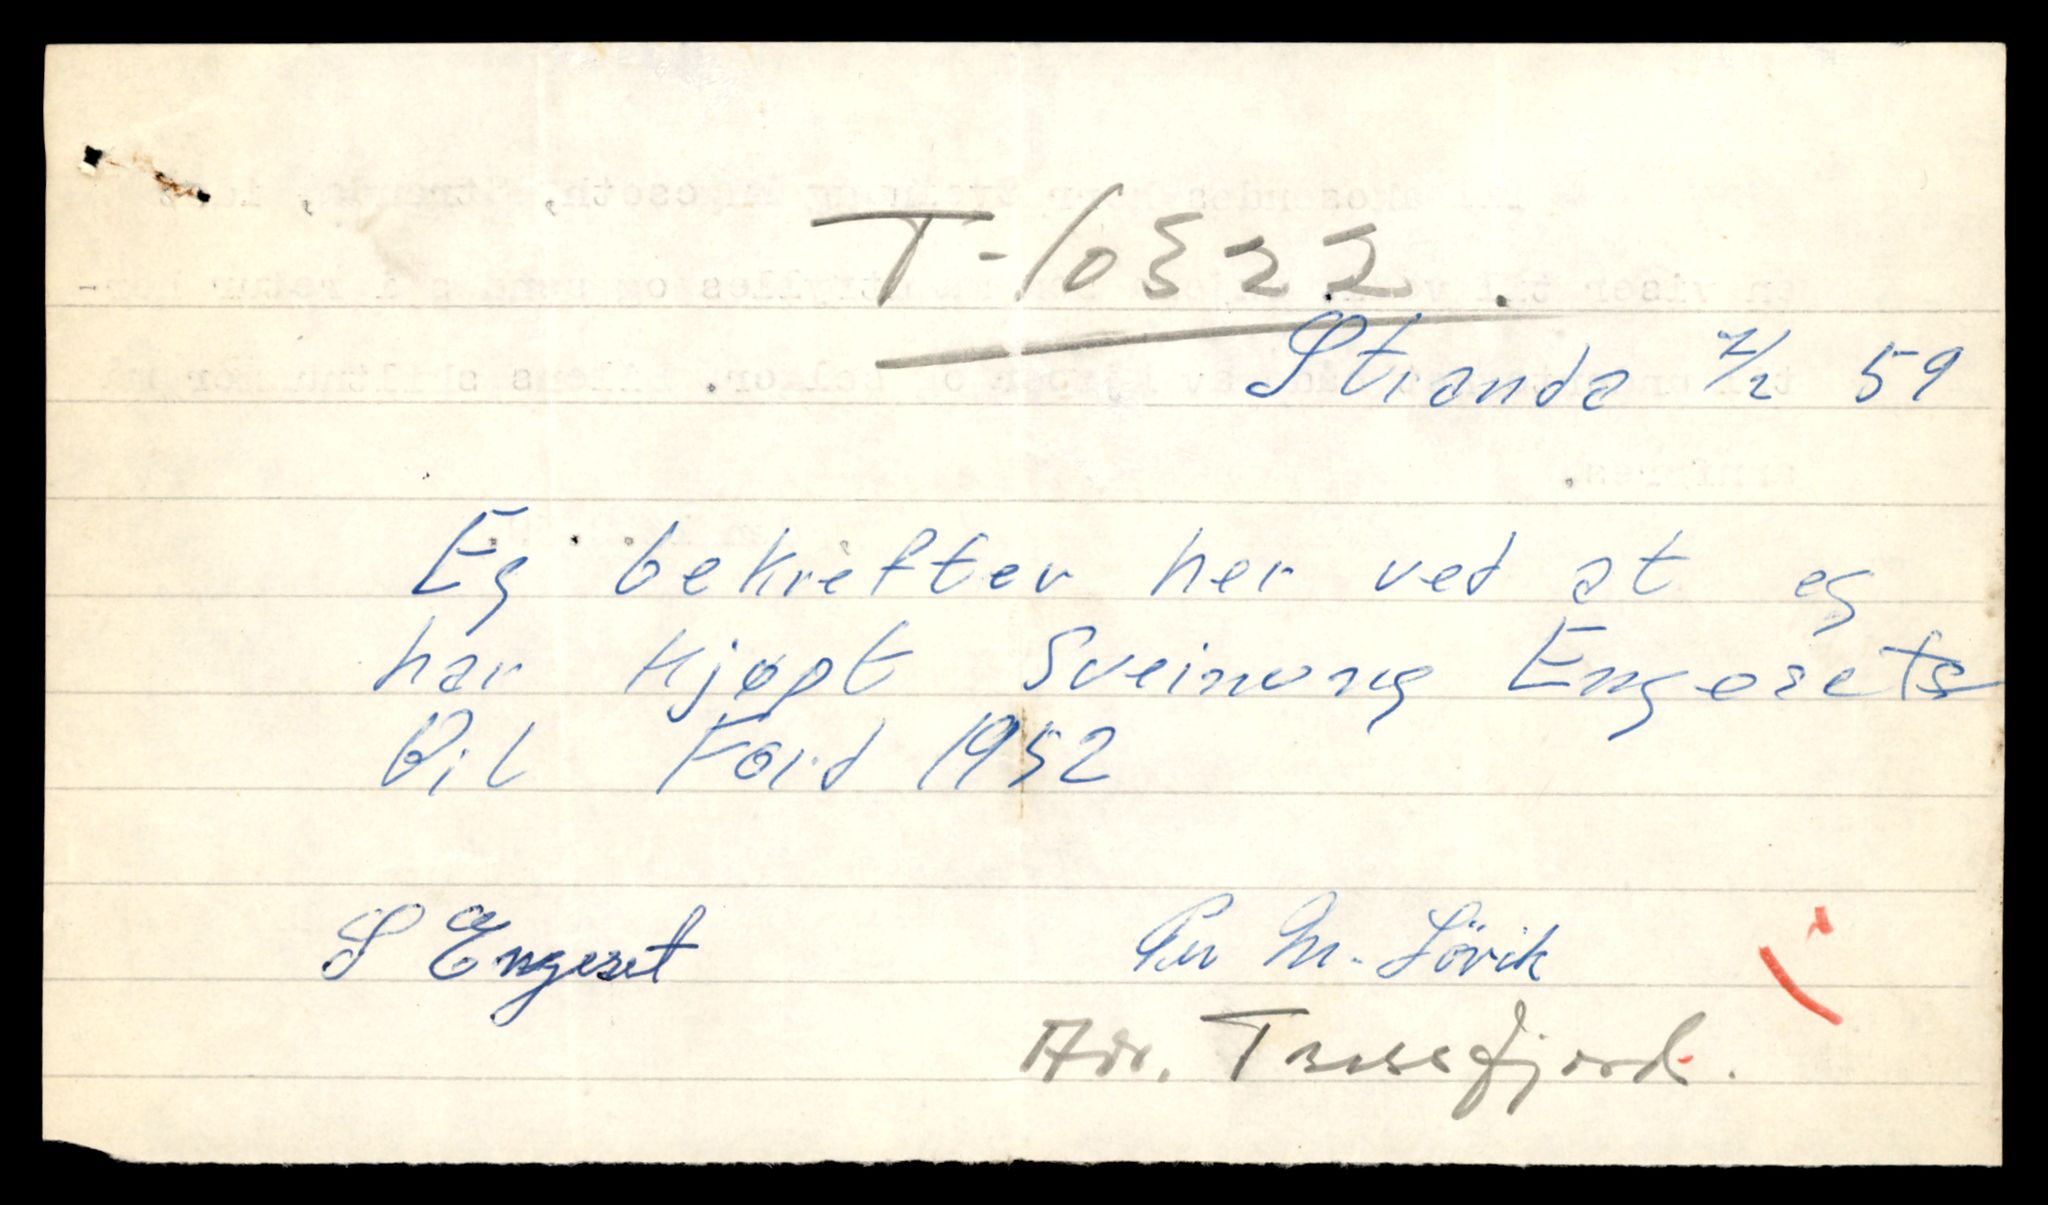 T-10322.
Stranda 7/2 59
Eg bekrefter her ved at eg
har kjøpt Sveinung Engesets
Bil Ford 1952
S Engeset
Per M. Lövik
Adr. Tresfjord.